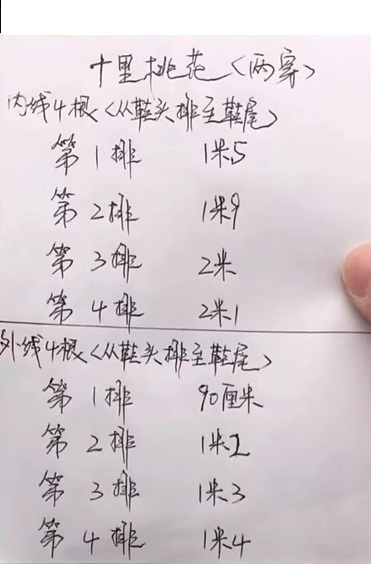 十里桃花<两穿>
内线4根<从鞋头排至鞋尾>
第1排 1米5
第2排 1米9
第3排 2米
第4排 2米1
外线4根<从鞋头排至鞋尾>
第1排 90厘米
第2排 1米2
第3排 1米3
第4排 1米4